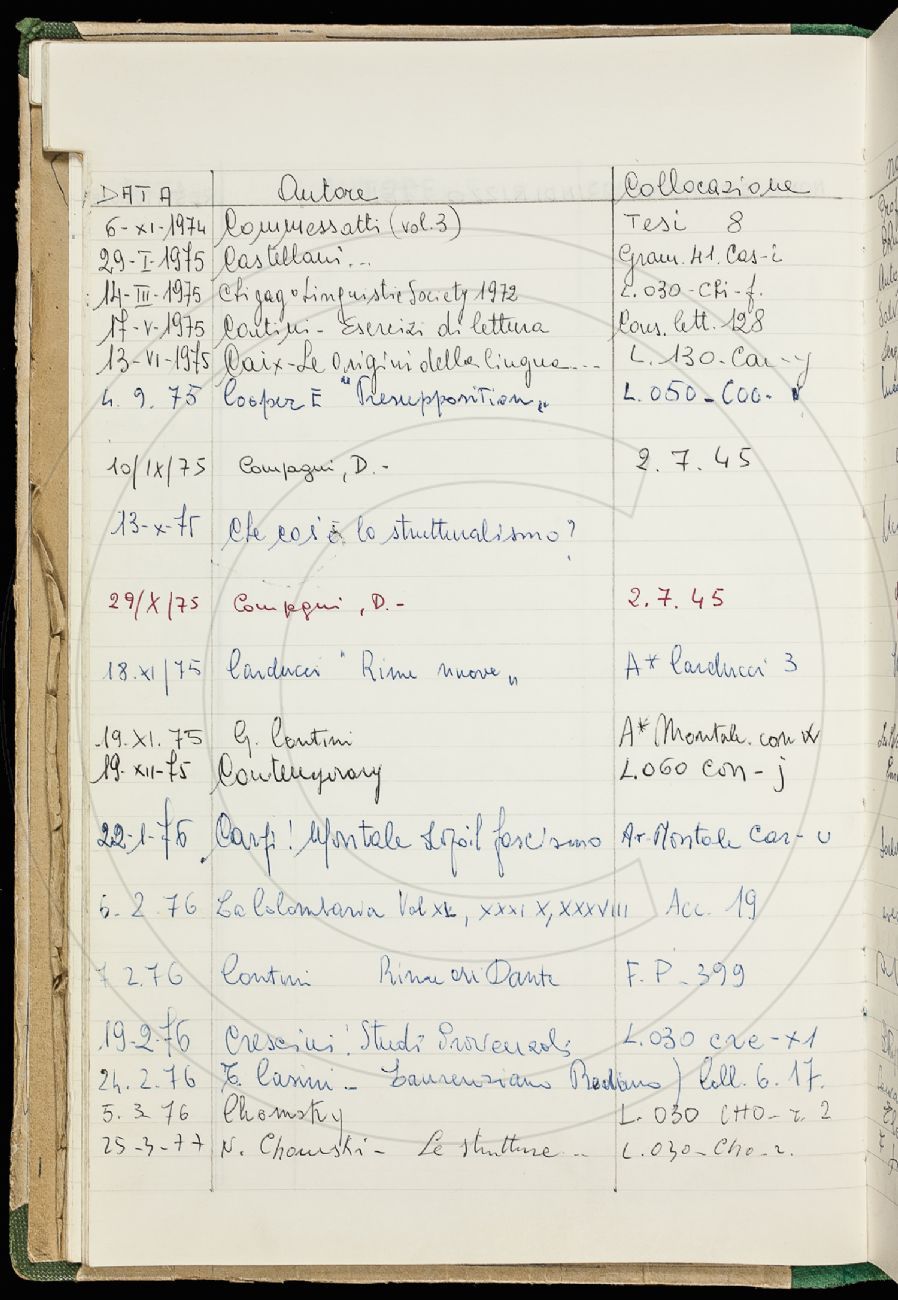 DATA Autore Collocazione
6-XI-1974 Commessatti (vol.3) Tesi 8
29-I-1975 Castellani... Gram. 41. Cas-i
14-III-1975 Chigago Linguistic Society 1972 L.030-Chi-f.
17-V-1975 Contini - Esercizi di lettura Cons. lett. 128
13-VI-1975 Caix-Le Origini della lingua... L. 130-Cai-y
4. 9. 75 Cooper E "Presupposition" L.050-Coo-
10/IX/75 Compagni, D.- 2. 7. 45
13-X-75 Che cos'è lo strutturalismo?
29/X/75 Compagni, D.- 2. 7. 45
18.XI/75 Carducci "Rime nuove" A* Carducci 3
19.XI.75 G. Contini A* Montale. con
19-XII-75 Contemporary L.060 Con-j
22-1-76 Carpi: Montale dopo il fascismo Ar. Montale Car-u
5. 2. 76 La Colombaria Vol XL, XXXIX, XXXVIII Acc. 19
7 2.76 Contini Rime di Dante F. P. 399
19-2-76 Crescini: Studi Provenzali L.030 cre-x1
24. 2. 76 T. Casini - Laurenziano Rediano) Coll. 6. 17.
5. 3 76 Chomsky L. 030 CHO-r. 2
25-3-77 N. Chomski - Le strutture... L.030-Cho-r.